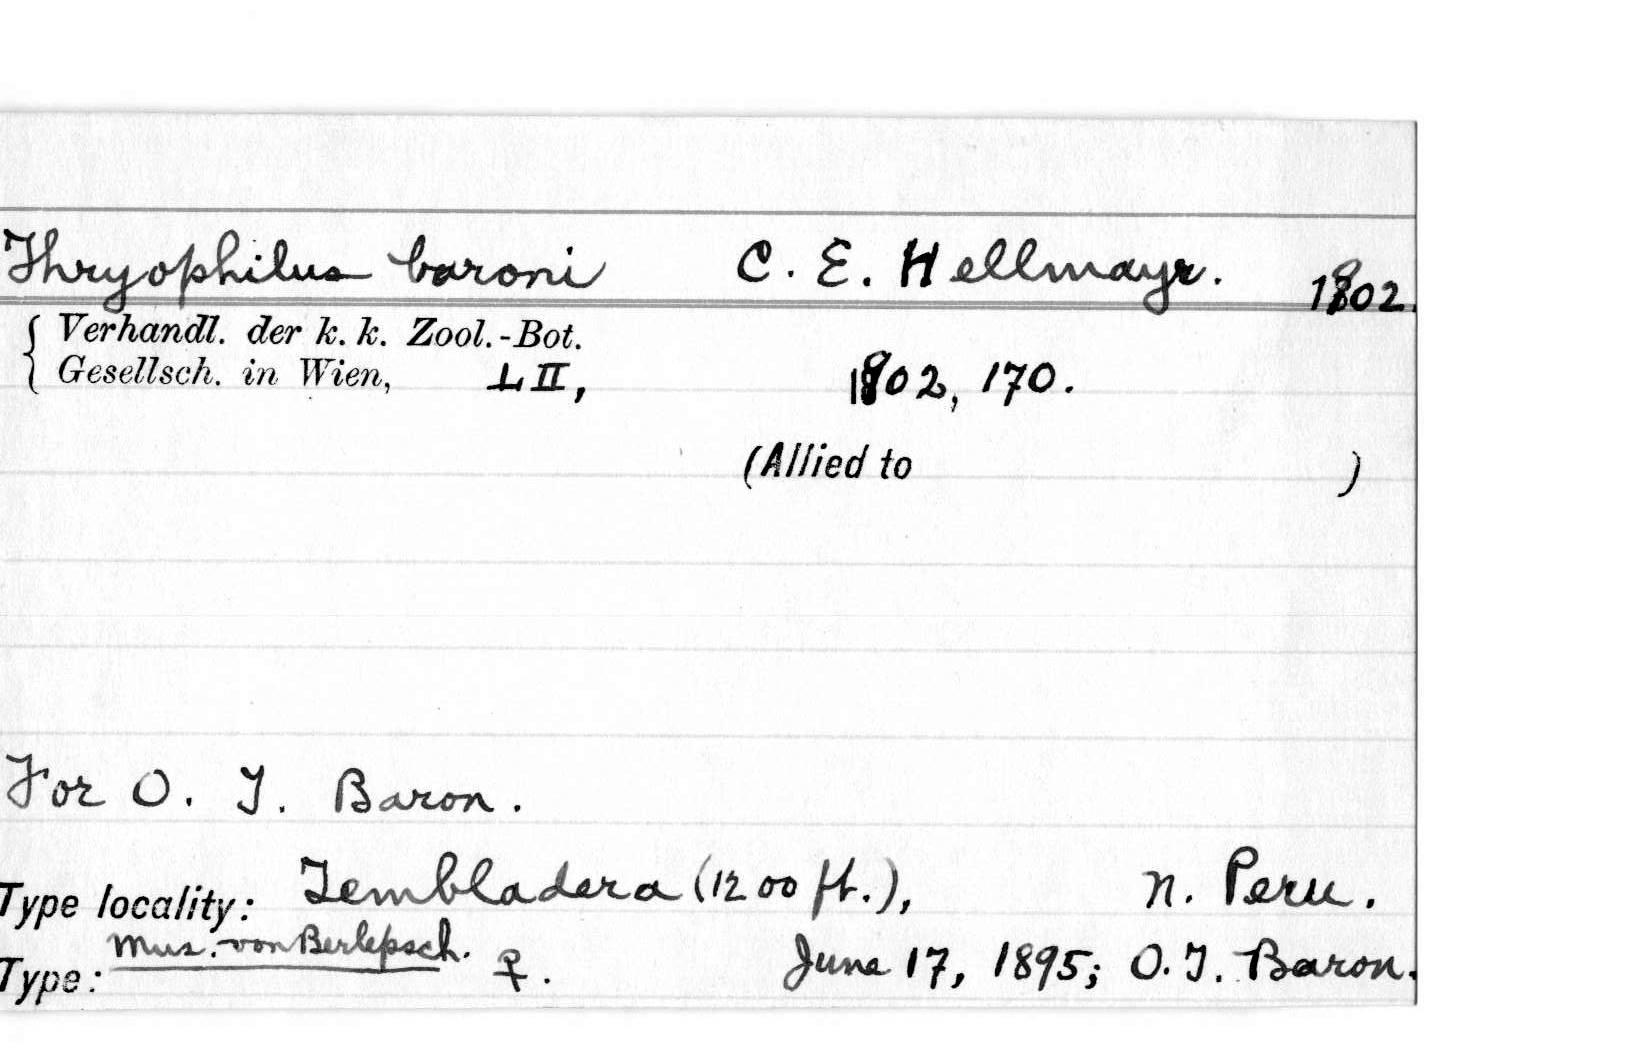 Thryophilus baroni C. E. Hellmayr. 1902.
Verhandl. der k. k. Zool.-Bot.
Gesellsch. in Wien, LII, 1902, 170.
(Allied to )
For O. T. Baron.
Type locality: Tembladera (1200 ft.), N. Peru.
Type: Mus. von Berlepsch. ♀. June 17, 1895; O. T. Baron.